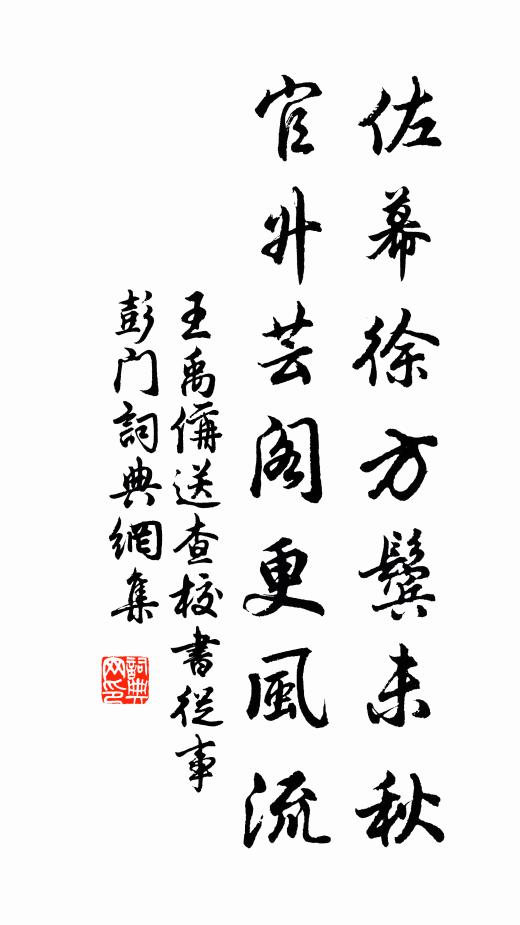 佐幕徐方鬢未秋
官升芸閣更風流
王禹偁送查校書從事
彭門詞典網集
詞典網印